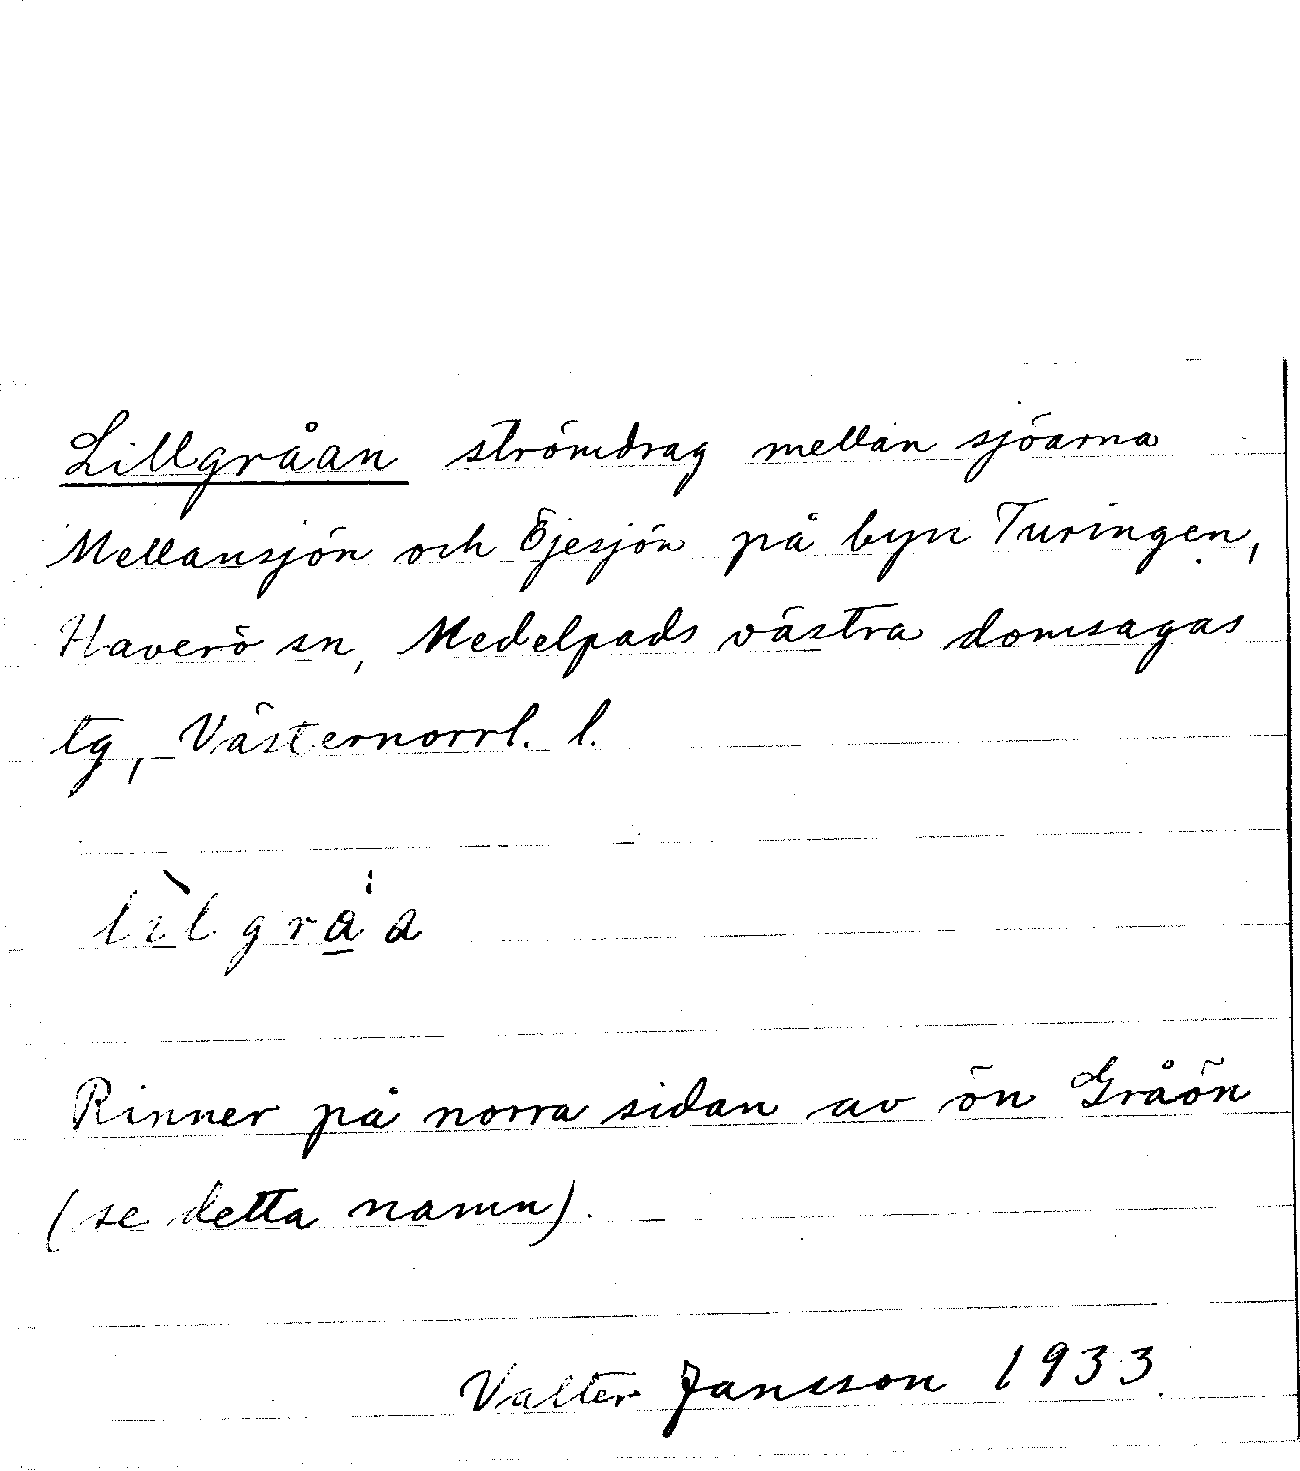 Lillgråan strömdrag mellan sjöarna
Mellansjön och Öjesjön på byn Turingen,
Haverö sn, Medelpads västra domsagas
tg, Västernorrl. l.
lìlgråa
Rinner på norra sidan av ön Gråön
(se detta namn).
Valter Jansson 1933.